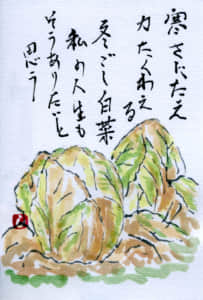 寒さにたえ
力たくわえる
冬ごし白菜
私の人生も
そうありたいと
思う